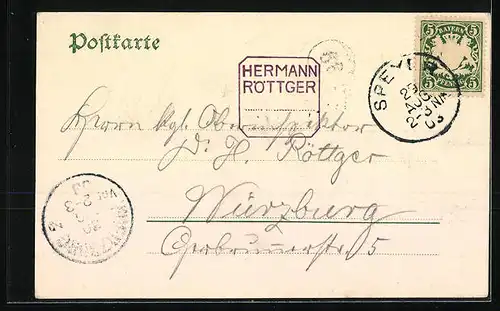 Postkarte
HERMANN
RÖTTGER
BAYERN
5 5
PFENNIG
SPEYER
Herrn kgl. Oberinspektor
Dr. H. Röttger
Würzburg
5